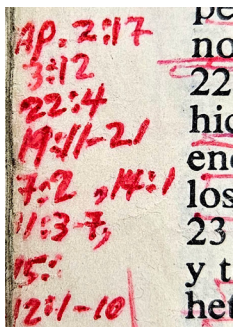 Ap. 2:17
3:12
22:4
19:11-21
7:2, 14:1
11:3-7,
15:
12:1-10
pe
no
22
hic
enc
los
23
y t
het